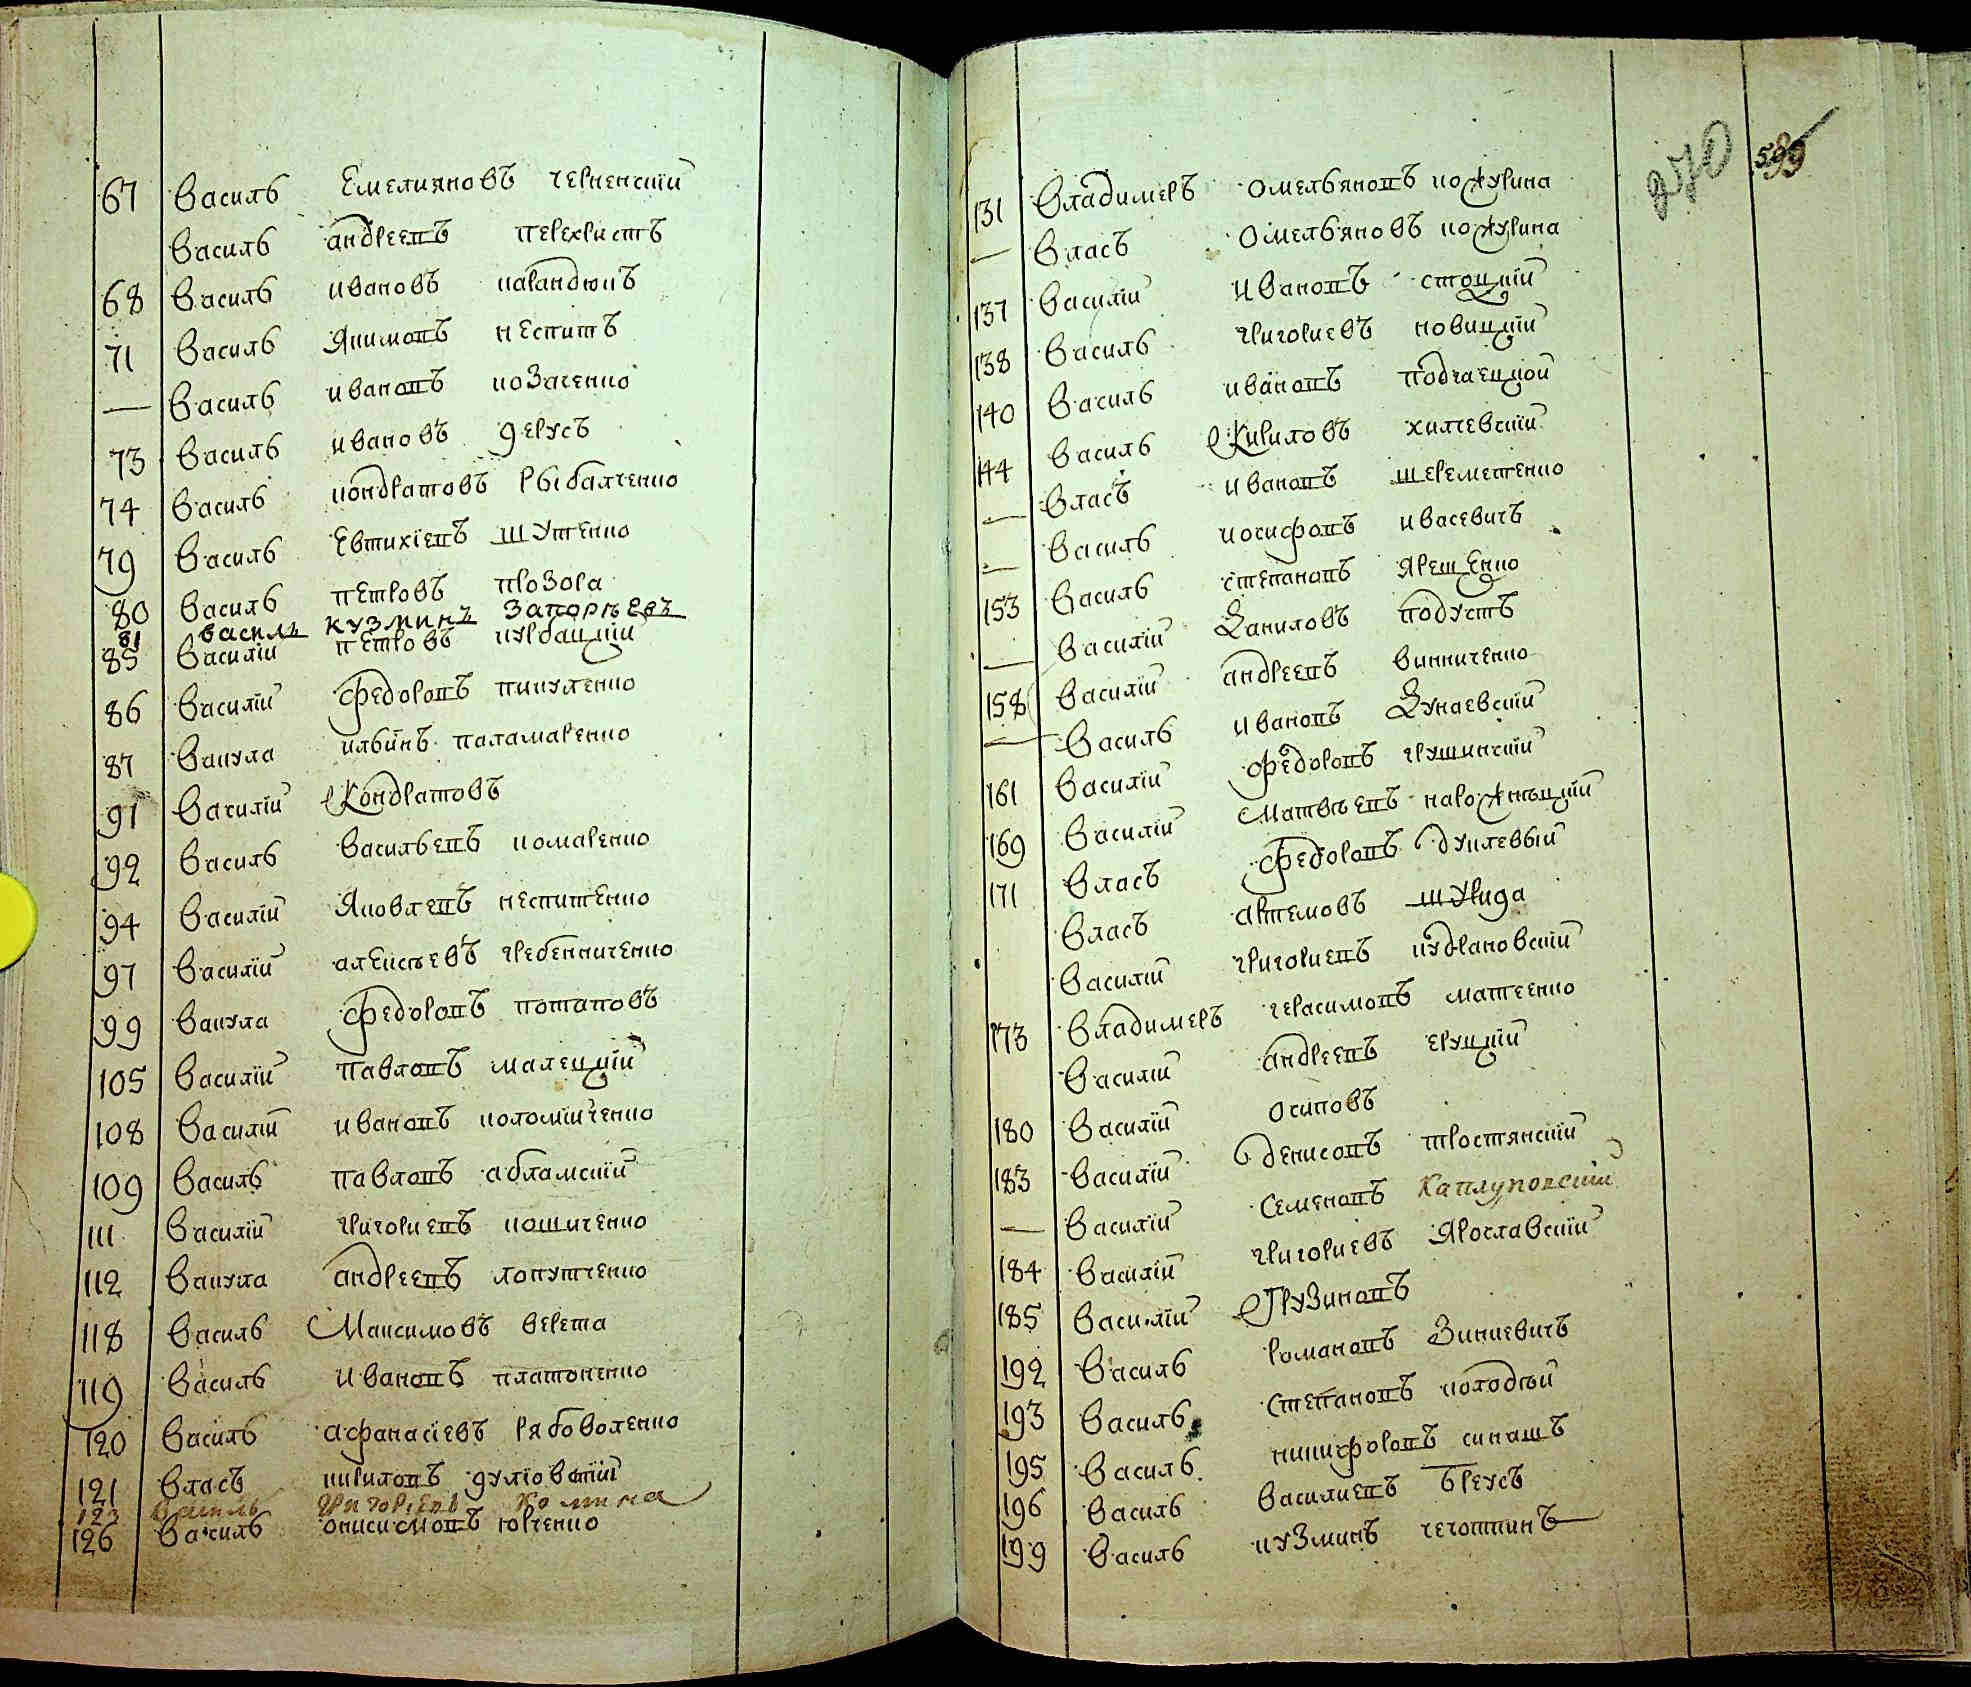 67 Василь Емелияновъ черненкий
Василь андреевъ перехристъ
68 Василь ивановъ карандюкъ
71 Василь Якимовъ неспитъ
— Василь ивановъ козаченко
73 Василь ивановъ дерусъ
74 Василь кондратовъ рыбалченко
79 Василь Евтихіевъ шутенко
80 Василь петровъ прозора
81 василь кузминъ запорѣевъ
85 Василїй петровъ курбацкїй
86 Василїй федоровъ пикуленко
87 Вакула ильинъ паламаренко
91 Василїй Кондратовъ
92 Василь Васильевъ комаренко
94 Василїй Яковлевъ неспитенко
97 Василїй алексѣевъ гребенниченко
99 Вакула федоровъ потаповъ
105 Василїй павловъ малецкїй
108 Василїй ивановъ коломїйченко
109 Василь павловъ абламскїй
111 Василїй григориевъ кошиченко
112 Вакула андреевъ лопутченко
118 Василь Максимовъ верета
119 Василь ивановъ платоненко
120 Василь афанасіевъ рябоволенко
121 Власъ кириловъ
123 Василь григориевъ
126 Василь онисимовъ юрченко
270 599
131 Владимеръ омельяновъ кожурина
— Власъ омельяновъ кожурина
137 Василїй ивановъ стоцкїй
138 Василь григориевъ новицкїй
140 Василь ивановъ подчаецкой
144 Василь Кириловъ хилчевскїй
— Власъ ивановъ шереметенко
— Василь иосифовъ ивасевичъ
153 Василь степановъ Ярещенко
— Василїй даниловъ подустъ
158 Василїй андреевъ винниченко
— Василь ивановъ дунаевскїй
161 Василїй федоровъ грушинскїй
169 Василїй Матвѣевъ нарожнѣцкїй
171 Власъ федоровъ
Власъ артемовъ шулида
Василїй григориевъ кудрановскїй
173 Владимеръ герасимовъ матеенко
Василїй андреевъ еруцкїй
180 Василїй осиповъ
183 Василїй денисовъ тростянскїй
— Василїй семеновъ Каплуновскїй
184 Василїй григориевъ Ярославскїй
185 Василїй Грузиновъ
192 Василь романовъ Зинкевичъ
193 Василь степановъ колодѣй
195 Василь никифоровъ синашъ
196 Василь василиевъ бреусъ
199 Василь кузминъ чеготкинъ